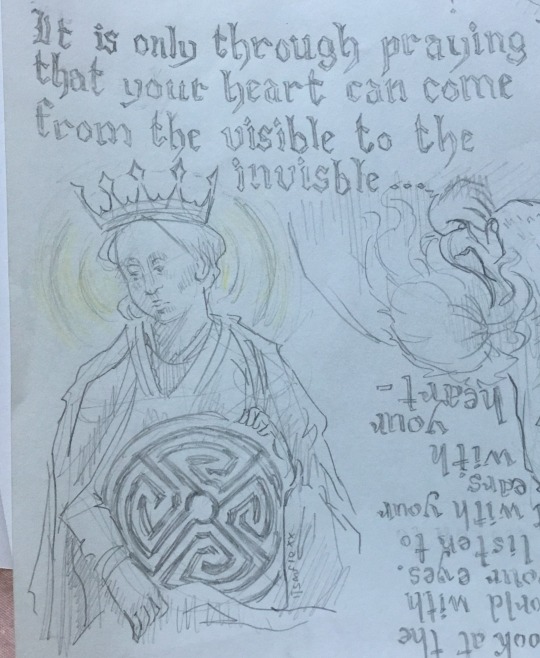 It is only through praying
that your heart can come
from the visible to the
invisble...
ook at the
orld with
your eyes.
listen to
t with your
ears
with
your
heart-